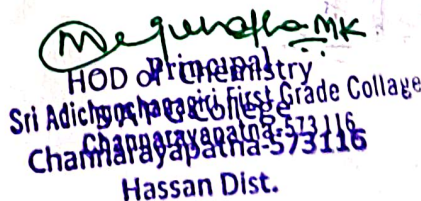 Principal
HOD of Chemistry
Sri Adichunchanagiri First Grade Collage
Channarayapatna-573116
Channarayapatna-573116
Hassan Dist.